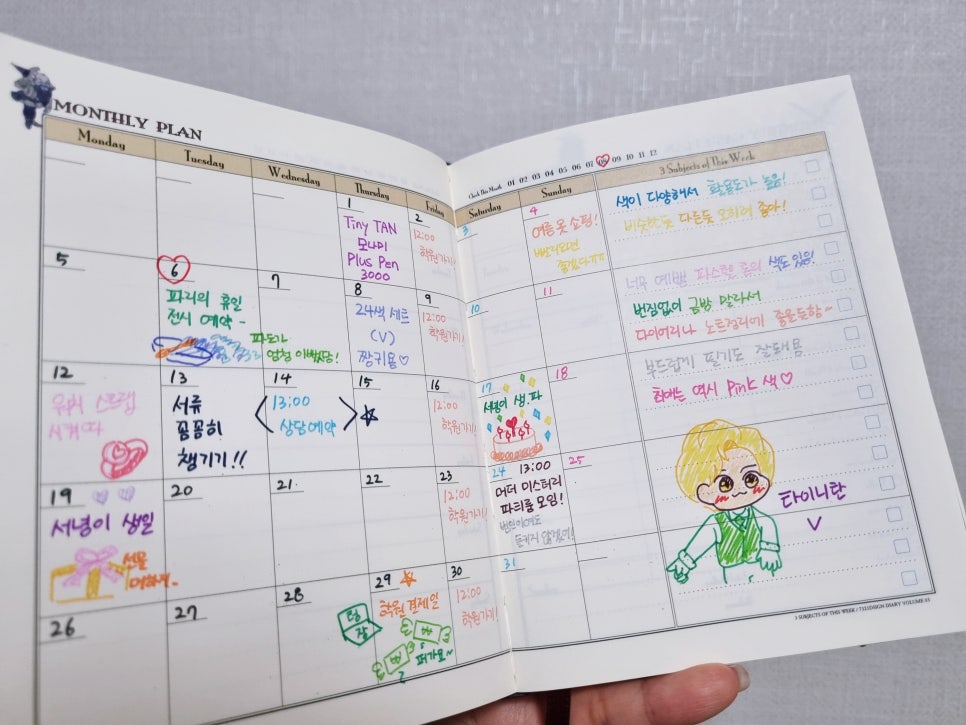 MONTHLY PLAN
Monday
Tuesday
Wednesday
Thursday
Friday
1
Tiny TAN
모나미
Plus Pen
3000
2
12:00
학원가기!
5
6
파리의 휴일
전시 예약~
파도가
엄청 이뻤담!
7
8
24색 세트
(V)
짱귀욤♡
9
12:00
학원가기!
12
워치 스트랩
사겨따
13
서류
꼼꼼히
챙기기!!
14
13:00
상담예약
15
16
12:00
학원가기!
19
서녕이 생일
선물
20
21
22
23
12:00
학원가기!
26
27
28
29
학원 결제일
텅
장
퍼가요~
30
12:00
학원가기!
Check This Month 01 02 03 04 05 06 07 08 09 10 11 12
Saturday
Sunday
3
4
여름옷 쇼핑!
10
11
17
서녕이 생.파
18
24
13:00
머더 미스터리
파티룸 모임!
25
31
3 Subjects of This Week
색이 다양해서 활용도가 높음!
비슷한듯 다른듯 오히려 좋아!
너무 예쁜 파스텔 톤의 색도 있음!
번짐없이 금방 말라서
다이어리나 노트정리에 좋을듯함~
부드럽게 필기도 잘돼욤
최애는 역시 Pink 색♡
타이니탄
V
3 SUBJECTS OF THIS WEEK / 7321DESIGN DIARY VOLUME 03